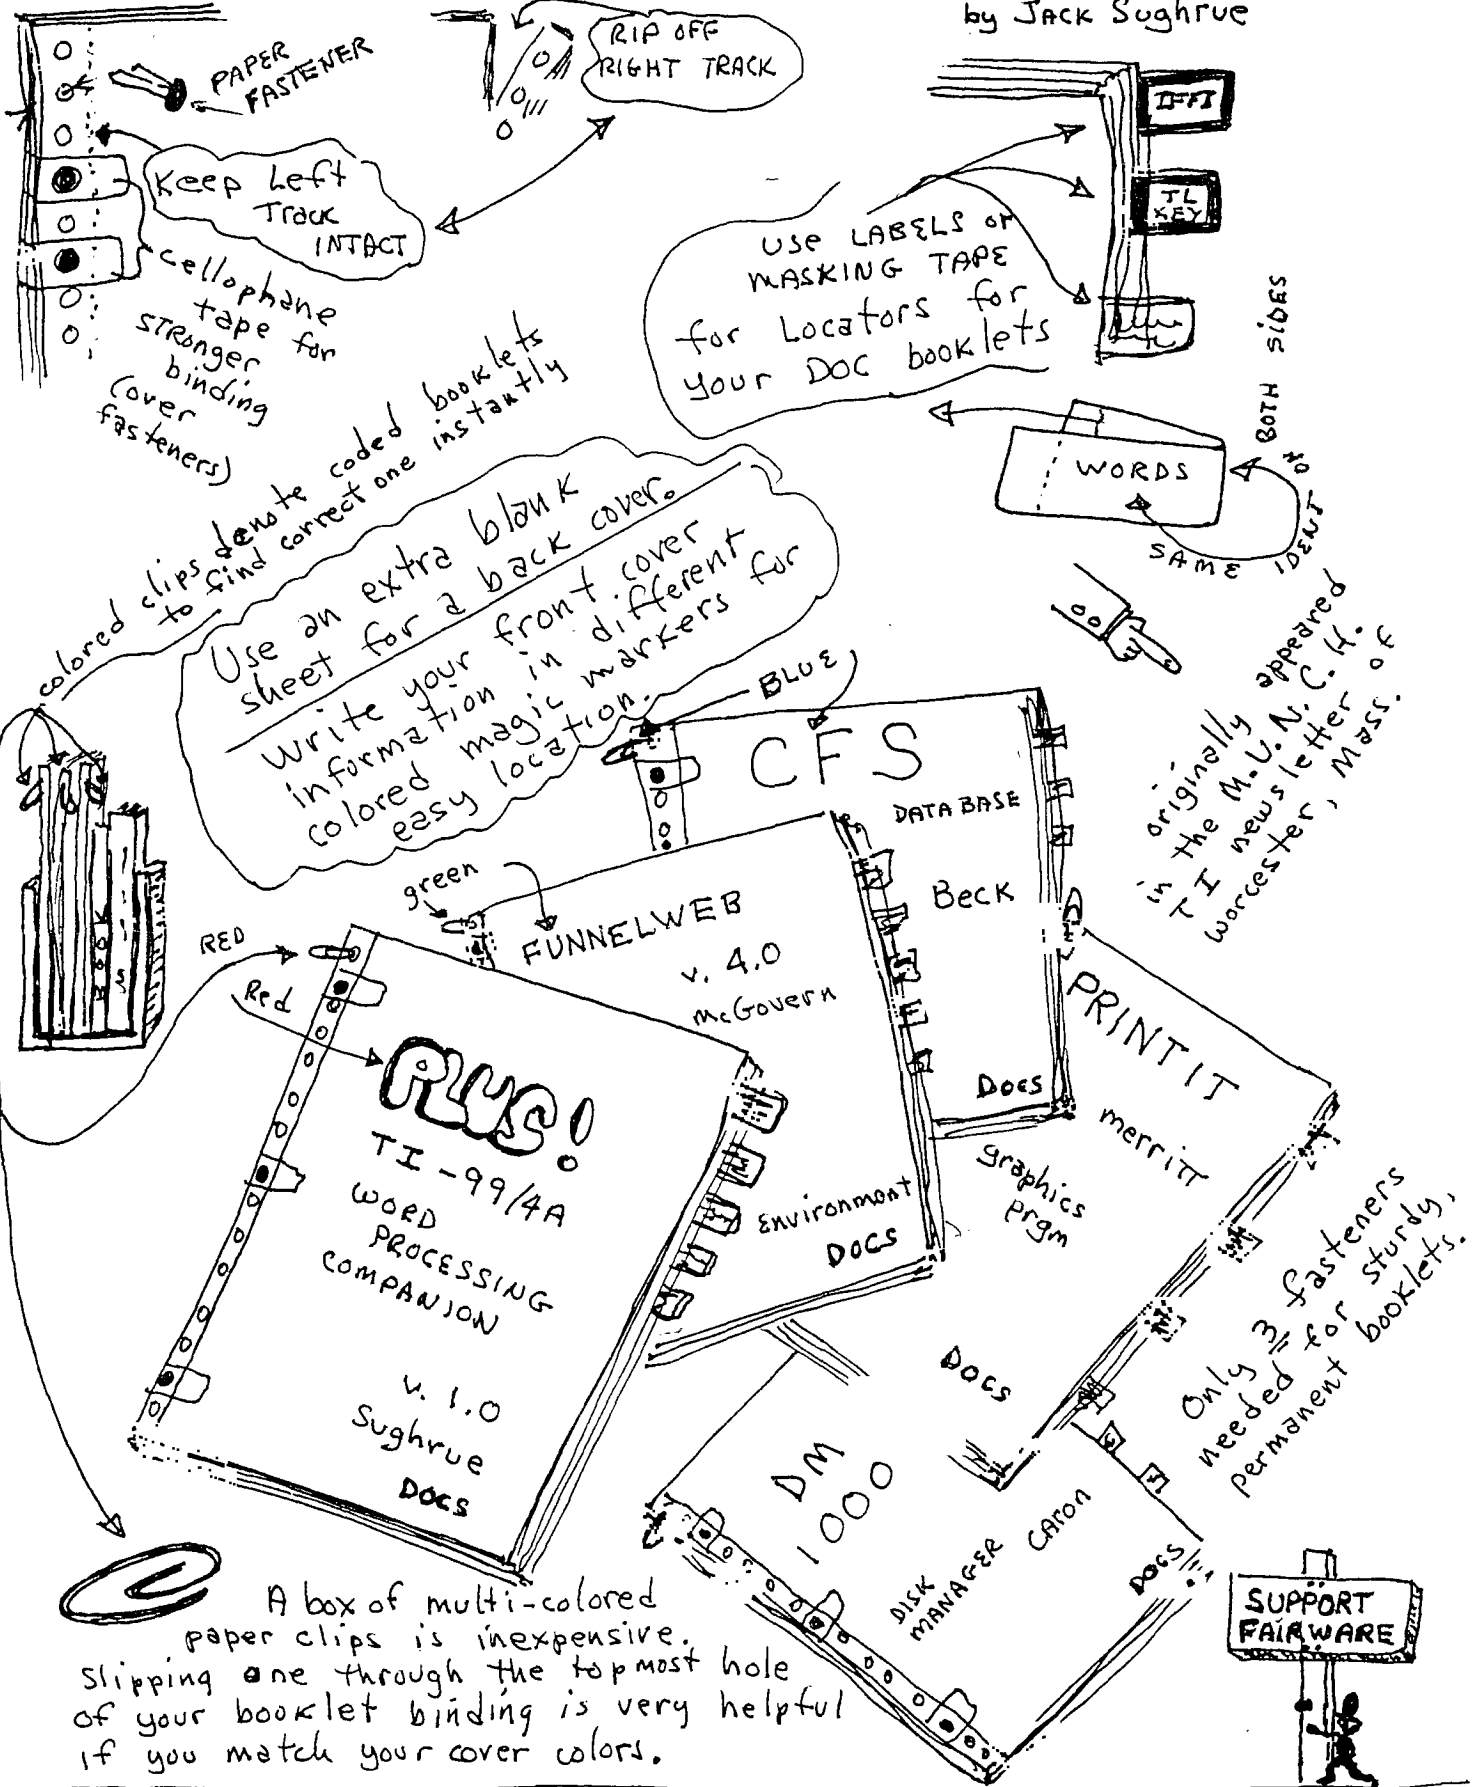 by JACK Sughrue
PAPER
FASTENER
RIP OFF
RIGHT TRACK
Keep Left
Track
INTACT
cellophane
tape for
STRonger
binding
(over
fasteners)
IFFI
TL
KEY
USE LABELS or
MASKING TAPE
for Locators for
your DOC booklets
WORDS
BOTH SIDES
SAME IDENT ON
colored clips denote coded booklets
to find correct one instantly
Use an extra blank
sheet for a back cover.
Write your front cover
information in different
colored magic markers for
easy location.
originally appeared
in the M.U.N.C.H.
TI newsletter of
Worcester, Mass.
BLUE
CFS
DATA BASE
Beck
DOCS
green
FUNNELWEB
v. 4.0
McGovern
Environment
DOCS
RED
Red
PLUS!
TI-99/4A
WORD
PROCESSING
COMPANION
v. 1.0
Sughrue
DOCS
PRINT IT
merritt
graphics
prgm
DOCS
Only 3 fasteners
needed for sturdy,
permanent booklets.
DM
1000
DISK
MANAGER
CARON
DOCS
A box of multi-colored
paper clips is inexpensive.
Slipping one through the topmost hole
of your booklet binding is very helpful
if you match your cover colors.
SUPPORT
FAIRWARE